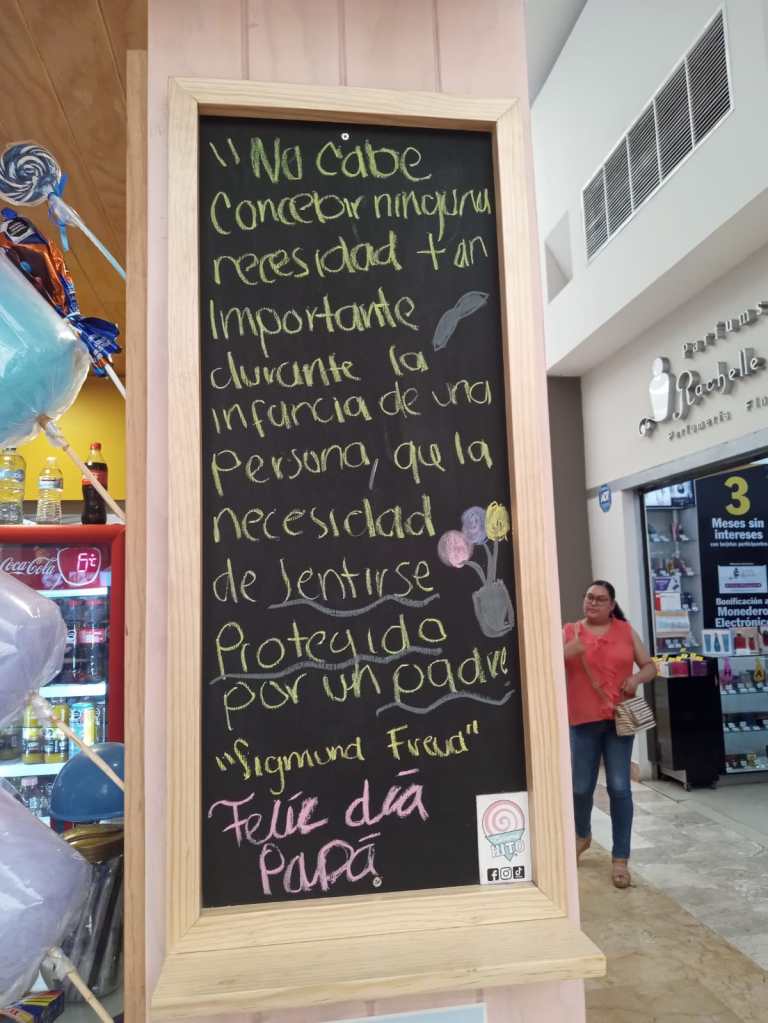 "No cabe
Concebir ninguna
necesidad tan
Importante
durante la
infancia de una
persona, que la
necesidad
de sentirse
Protegido
por un padre
"Sigmund Freud"
Feliz día
Papá
HITO
Coca-Cola
Parfums
Rochelle
Perfumería Fin
ADT
3
Meses sin
intereses
con tarjetas participantes
Bonificación a
Monedero
Electrónico